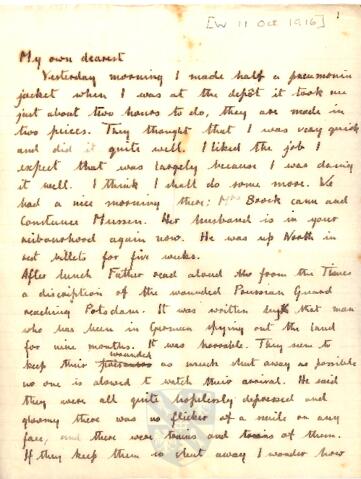 1
[W 11 Oct 1916]
My own dearest
Yesterday morning I made half a pneumonia
jacket when I was at the depôt it took me
just about two hours to do, they are made in
two pieces. They thought that I was very quick
and did it quite well. I liked the job I
expect that was largely because I was doing
it well. I think I shall do some more. We
had a nice morning there: Mrs Brock came and
Constance Mussen. Her husband is in your
neibourhood again now. He was up North in
rest billets for five weeks.
After lunch Father read aloud to from the Times
a discription of the wounded Prussian Guard
reaching Potsdam. It was written by that man
who has been in Germany spying out the land
for nine months. It was horrable. They seem to
keep their wounded as much shut away as possible
no one is alowed to watch their arrival. He said
they were all quite hoplessly depressed and
gloomy there was no flicker of a smile on any
face, and there were trains and trains of them.
If they keep them so shut away I wonder how